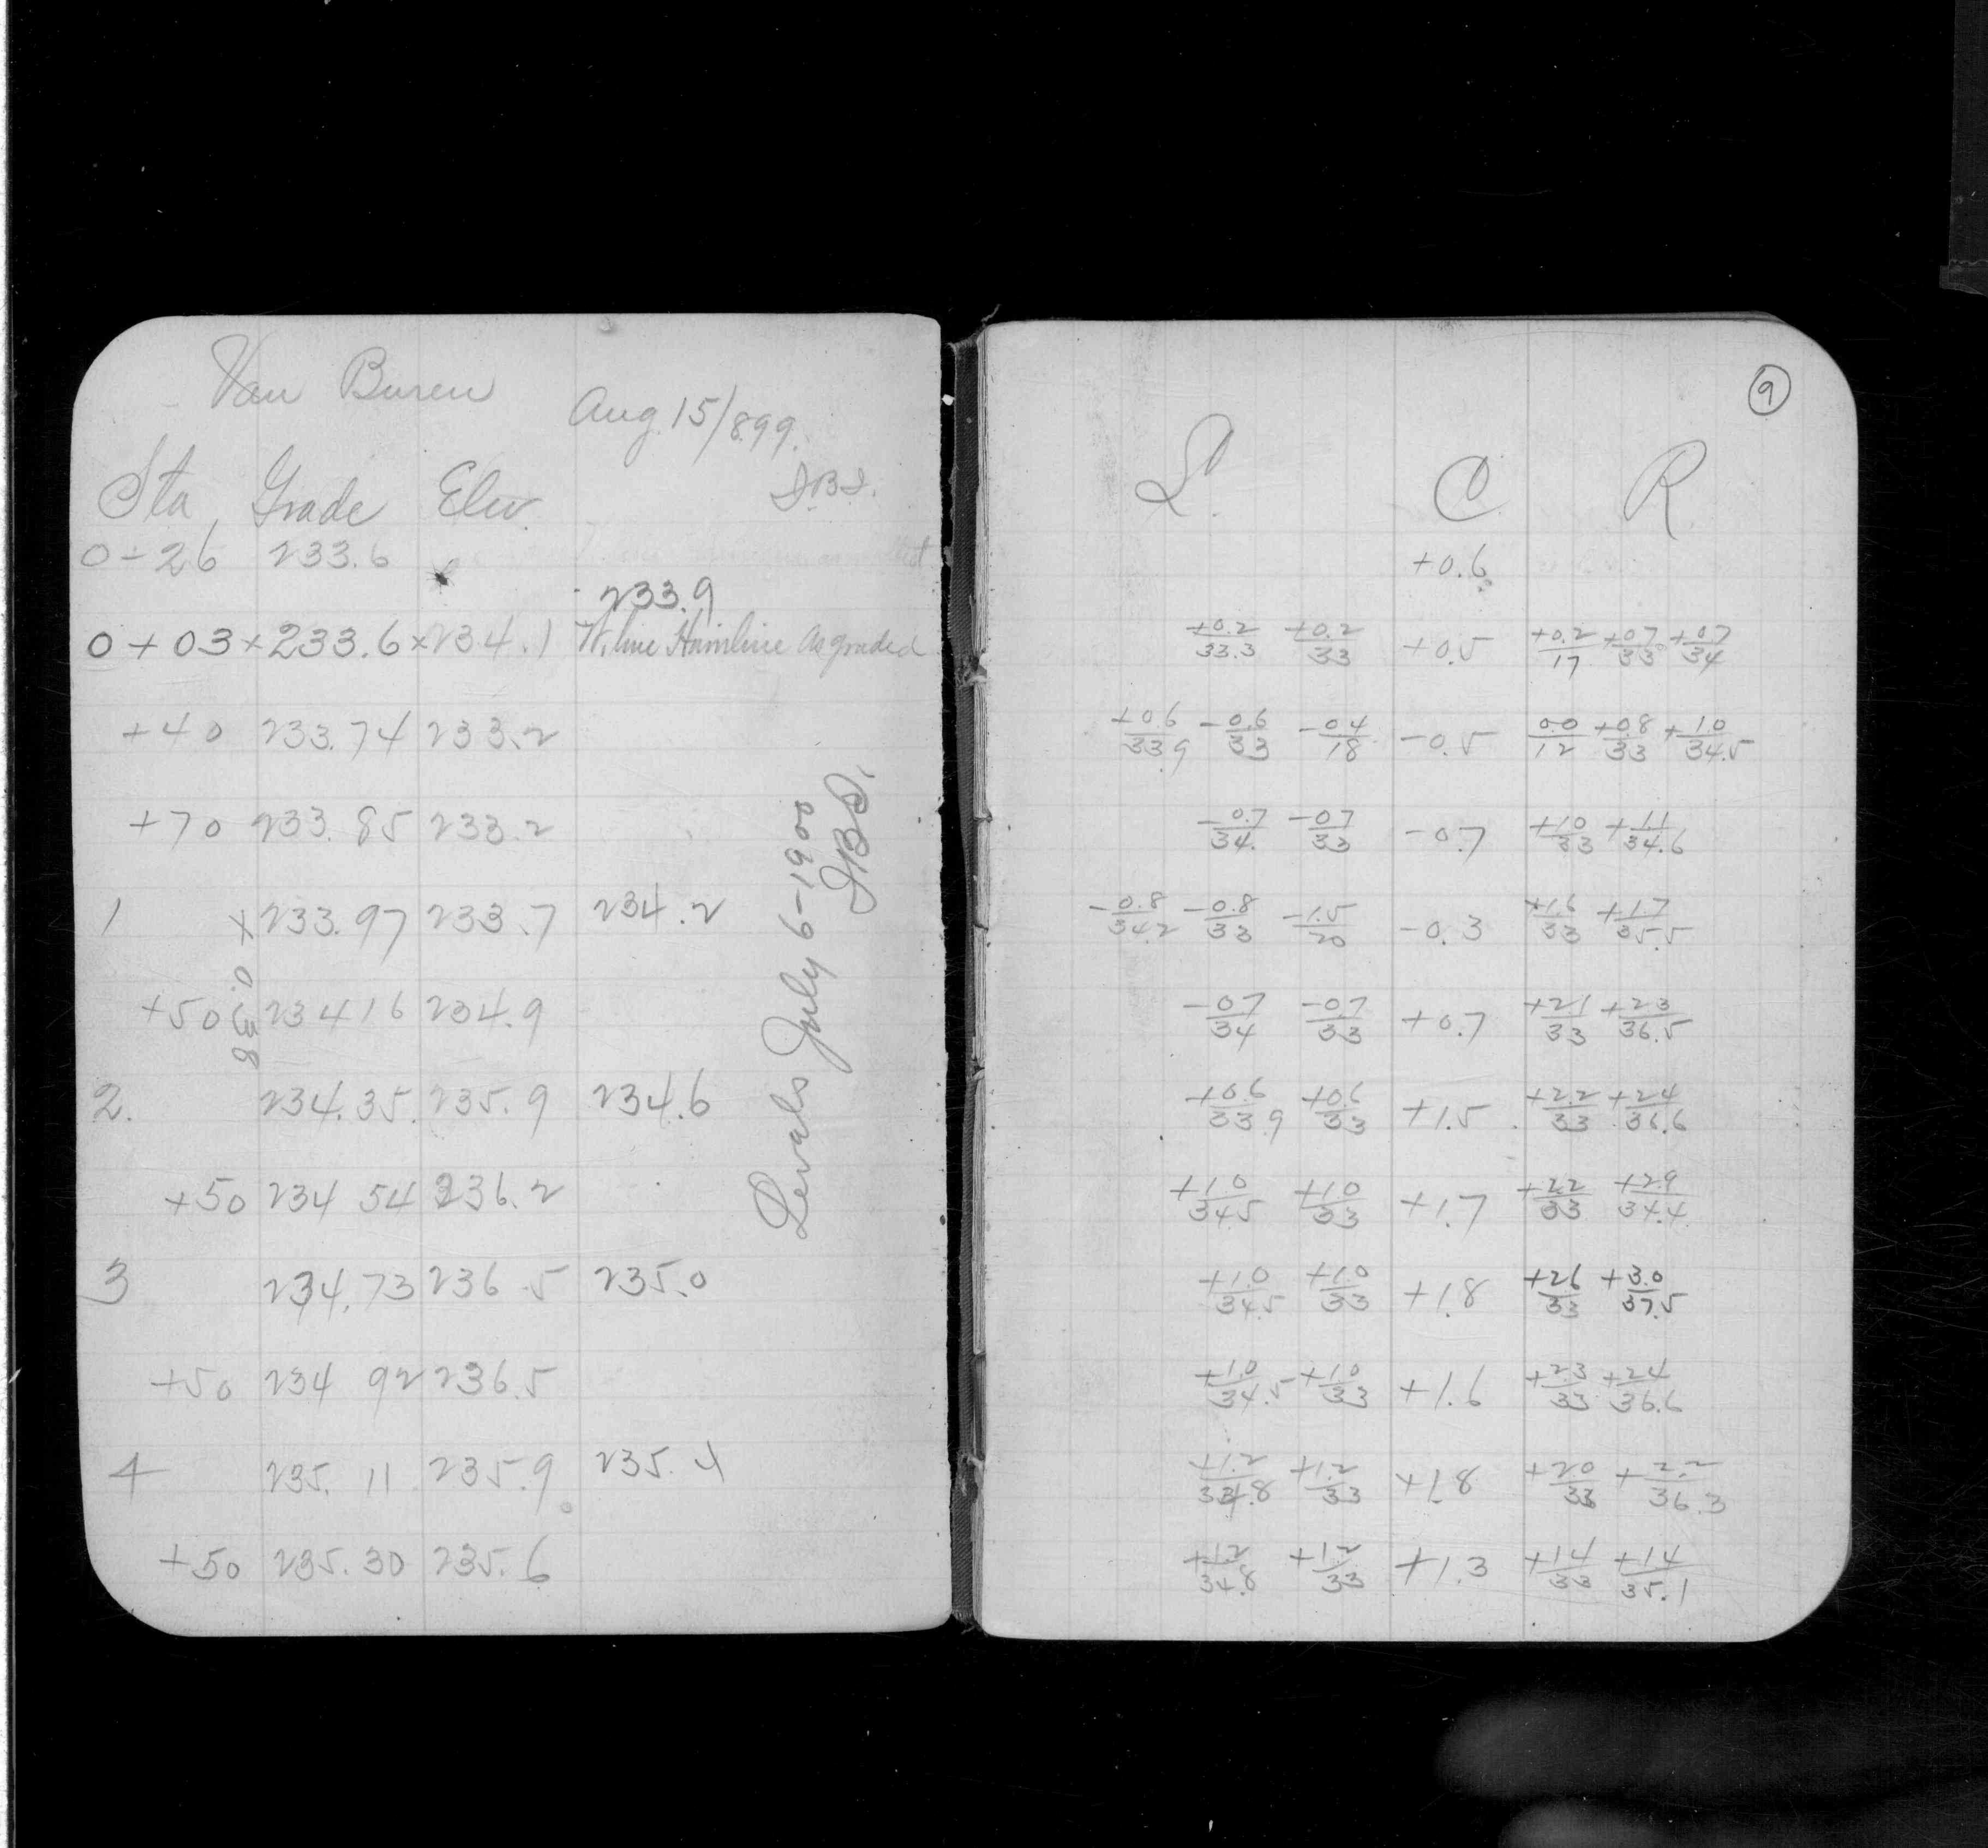 Van Buren
Aug. 15/899.
J.B.I.
Sta. Grade Elev.
0-26 233.6
233.9
0+03 × 233.6 × 234.1 W. line Hamline As graded
+40 233.74 233.2
+70 233.85 233.2
1 × 233.97 233.7 234.2
0.38
+50 234 16 234.9
2. 234.35 235.9 234.6
+50 234 54 236.2
3 234.73 236.5 235.0
+50 234 92 236.5
4 235.11 235.9 235.4
+50 235.30 235.6
Levels July 6-1900
9
L. C. R
+0.6
+0.2/33.3 +0.2/33 +0.5 +0.2/17 +0.7/33 +0.7/34
+0.6/33.9 -0.6/33 -0.4/18 -0.5 0.0/12 +0.8/33 +1.0/34.5
-0.7/34. -0.7/33 -0.7 +1.0/33 +1.1/34.6
-0.8/34.2 -0.8/33 -1.5/20 -0.3 +1.6/33 +1.7/35.5
-0.7/34 -0.7/33 +0.7 +2.1/33 +2.3/36.5
+0.6/33.9 +0.6/33 +1.5 +2.2/33 +2.4/36.6
+1.0/34.5 +1.0/33 +1.7 +2.2/33 +2.9/34.4
+1.0/34.5 +1.0/33 +1.8 +2.6/33 +3.0/37.5
+1.0/34.5 +1.0/33 +1.6 +2.3/33 +2.4/36.6
+1.2/34.8 +1.2/33 +1.8 +2.0/33 +2.2/36.3
+1.2/34.8 +1.2/33 +1.3 +1.4/33 +1.4/35.1